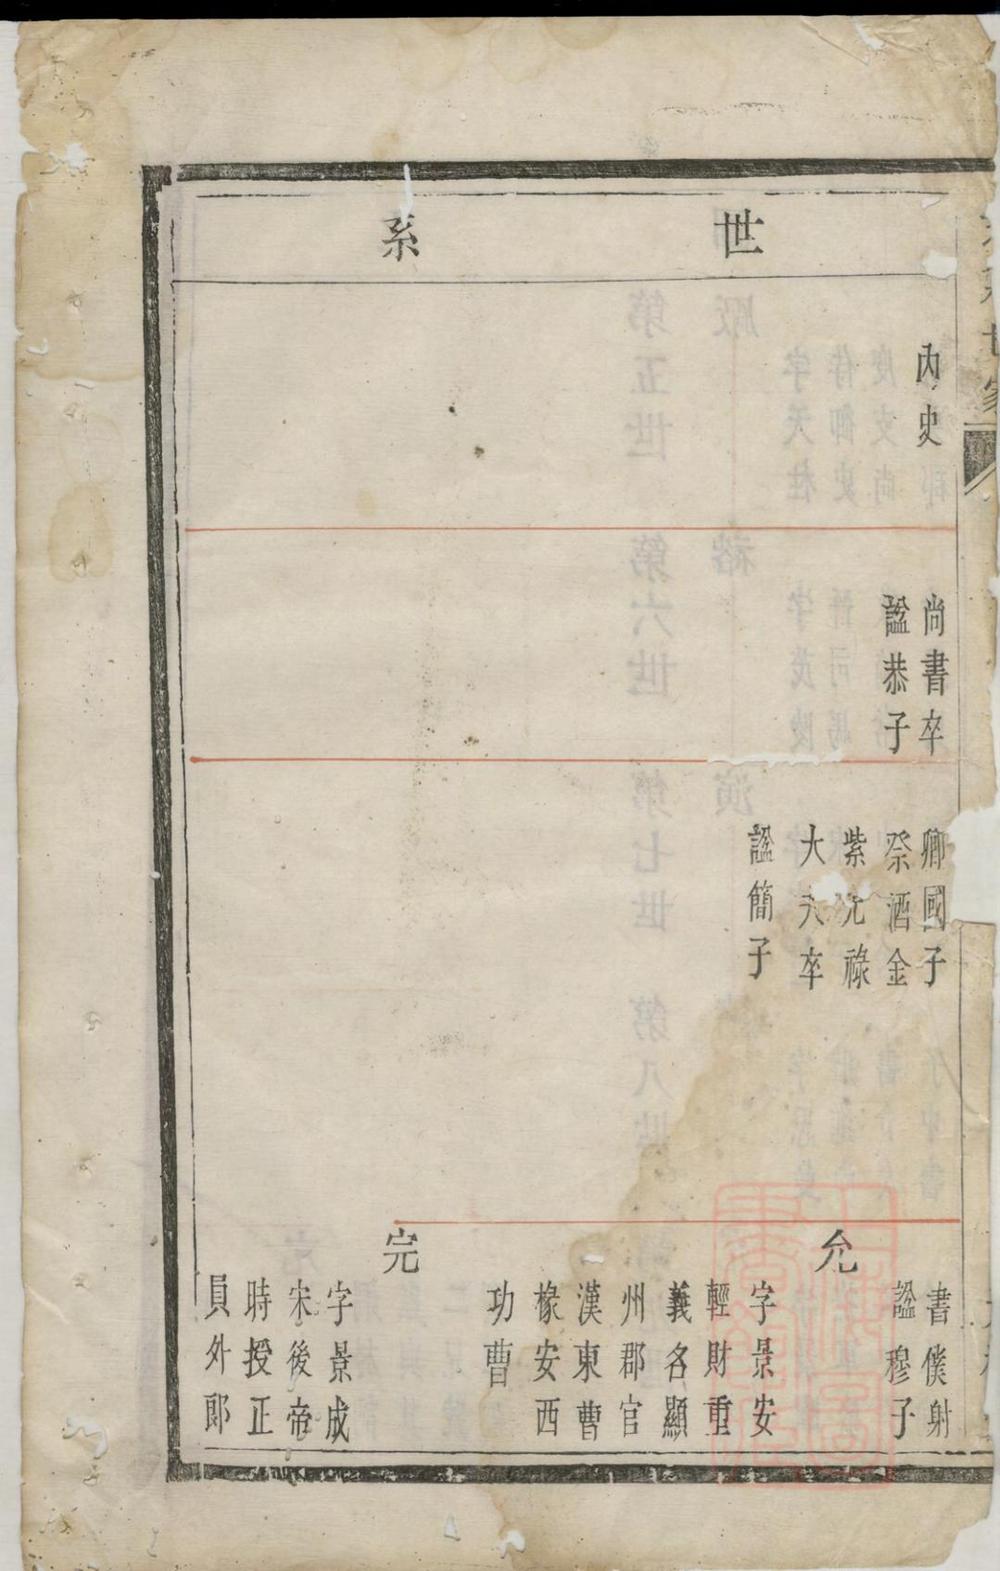 世系
內史
尚書卒
諡恭子
卿國子
祭酒金
紫光祿
大夫卒
諡簡子
書僕射
諡穆子
允
字景安
輕財重
義名顯
州郡官
漢東曹
椽安西
功曹
完
字景成
宋後帝
時授正
員外郎